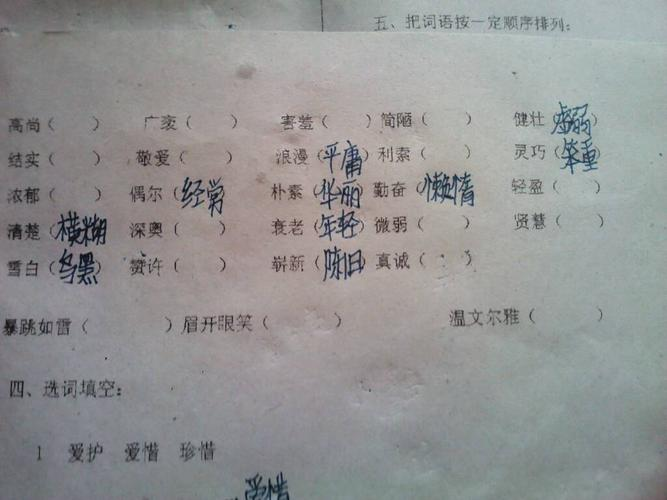 五、把词语按一定顺序排列:
高尚（ ） 广袤（ ） 害羞（ ） 简陋（ ） 健壮（虚弱）
结实（ ） 敬爱（ ） 浪漫（平庸） 利索（ ） 灵巧（笨重）
浓郁（ ） 偶尔（经常） 朴素（华丽） 勤奋（懒惰） 轻盈（ ）
清楚（模糊） 深奥（ ） 衰老（年轻） 微弱（ ） 贤慧（ ）
雪白（乌黑） 赞许（ ） 崭新（陈旧） 真诚（ ）
暴跳如雷（ ） 眉开眼笑（ ） 温文尔雅（ ）
四、选词填空:
1 爱护 爱惜 珍惜
爱惜